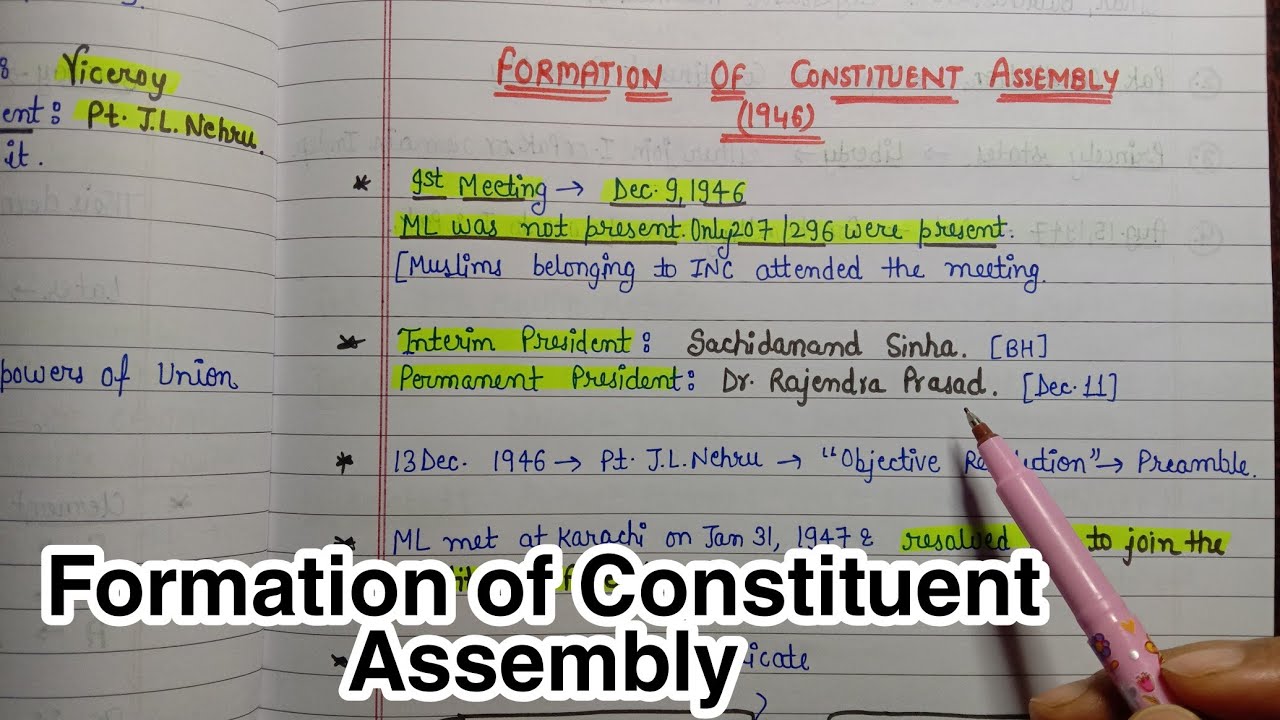 : Viceroy
ent: Pt. J.L. Nehru.
it.
powers of Union
FORMATION OF CONSTITUENT ASSEMBLY
(1946)
* 1st Meeting → Dec. 9, 1946
ML was not present. Only 207/296 were present.
[Muslims belonging to INC attended the meeting.
* Interim President: Sachidanand Sinha. [BH]
Permanent President: Dr. Rajendra Prasad. [Dec. 11]
* 13 Dec. 1946 → Pt. J.L. Nehru → "Objective → Preamble.
* ML met at Karachi on Jan 31, 1947 & resolved to join the
Formation of Constituent
Assembly